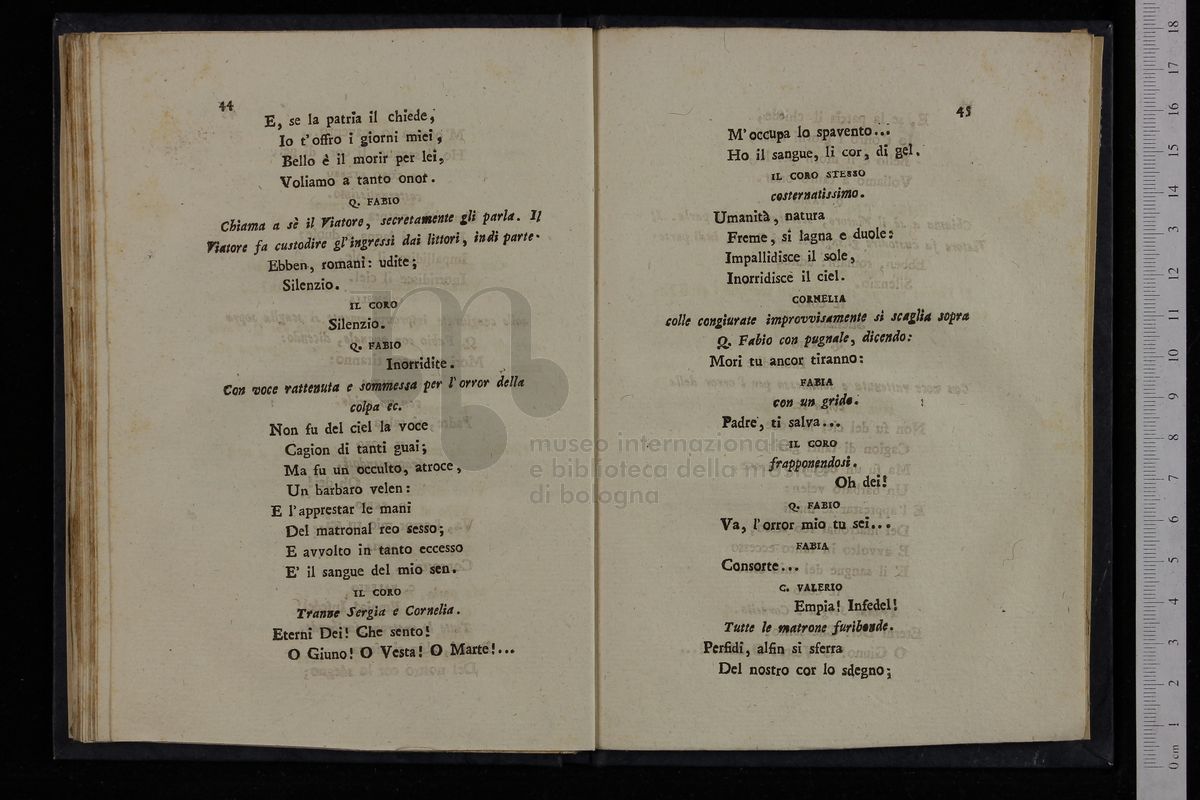 44
E, se la patria il chiede,
Io t'offro i giorni miei,
Bello è il morir per lei,
Voliamo a tanto onor.
Q. FABIO
Chiama a sè il Viatore, secretamente gli parla. Il
Viatore fa custodire gl'ingressi dai littori, indi parte.
Ebben, romani: udite;
Silenzio.
IL CORO
Silenzio.
Q. FABIO
Inorridite.
Con voce rattenuta e sommessa per l'orror della
colpa ec.
Non fu del ciel la voce
Cagion di tanti guai;
Ma fu un occulto, atroce,
Un barbaro velen:
E l'apprestar le mani
Del matronal reo sesso;
E avvolto in tanto eccesso
E' il sangue del mio sen.
IL CORO
Tranne Sergia e Cornelia.
Eterni Dei! Che sento!
O Giuno! O Vesta! O Marte!...
45
M'occupa lo spavento...
Ho il sangue, li cor, di gel.
IL CORO STESSO
costernatissimo.
Umanità, natura
Freme, si lagna e duole:
Impallidisce il sole,
Inorridisce il ciel.
CORNELIA
colle congiurate improvvisamente si scaglia sopra
Q. Fabio con pugnale, dicendo:
Mori tu ancor tiranno:
FABIA
con un grido.
Padre, ti salva...
IL CORO
frapponendosi.
Oh dei!
Q. FABIO
Va, l'orror mio tu sei...
FABIA
Consorte...
C. VALERIO
Empia! Infedel!
Tutte le matrone furibonde.
Perfidi, alfin si sferra
Del nostro cor lo sdegno;
museo internazionale
e biblioteca della musica
di bologna
0 cm 1 2 3 4 5 6 7 8 9 10 11 12 13 14 15 16 17 18